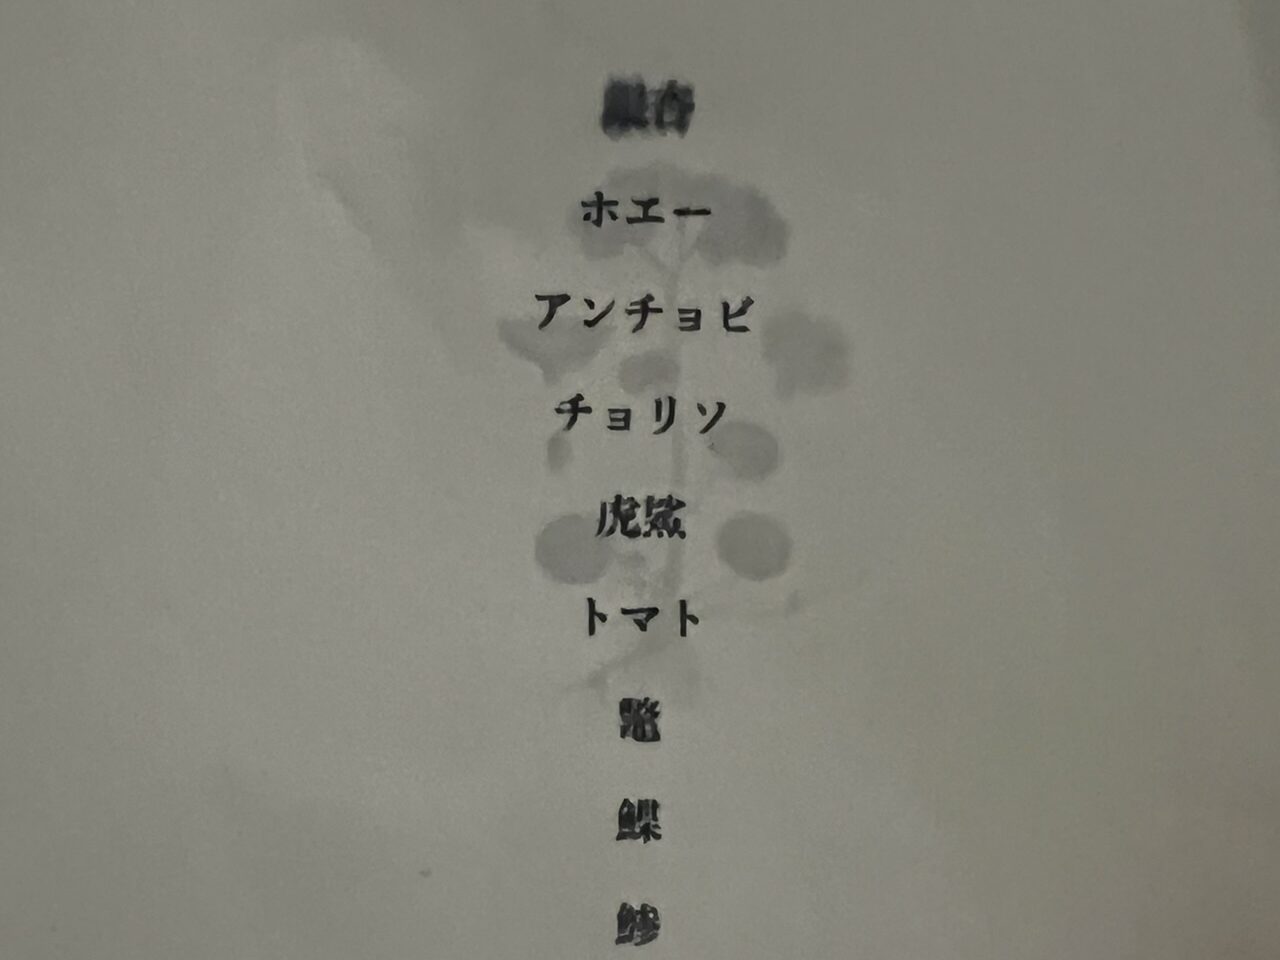 銀杏
ホエー
アンチョビ
チョリソ
虎鯊
トマト
鰈
鯵